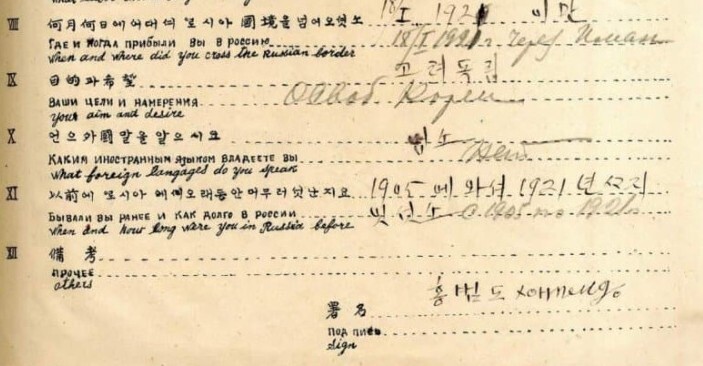 VIII 何月何日에어대서 로시아 國境을넘어오셧소 18/I 1921 이만
ГДЕ И КОГДА ПРИБЫЛИ ВЫ В РОССИЮ 18/I 1921 г. через Иман
When and where did you cross the Russian border
고려독립
IX 目的과希望
ВАШИ ЦЕЛИ И НАМЕРЕНИЯ Освоб Кореи
Your aim and desire
X 언으外國말을알으시요
КАКИМ ИНОСТРАННЫМ ЯЗЫКОМ ВЛАДЕЕТЕ ВЫ Нет
What foreign langages do you speak
XI 以前에 로시아 1921 년
БЫВАЛИ ВЫ РАНЕЕ И КАК ДОЛГО В РОССИИ с 1905 по 1921
When and how long were you in Russia before
XII 備考
ПРОЧЕЕ
others
홍범도
署名
ПОДПИСЬ
Sign